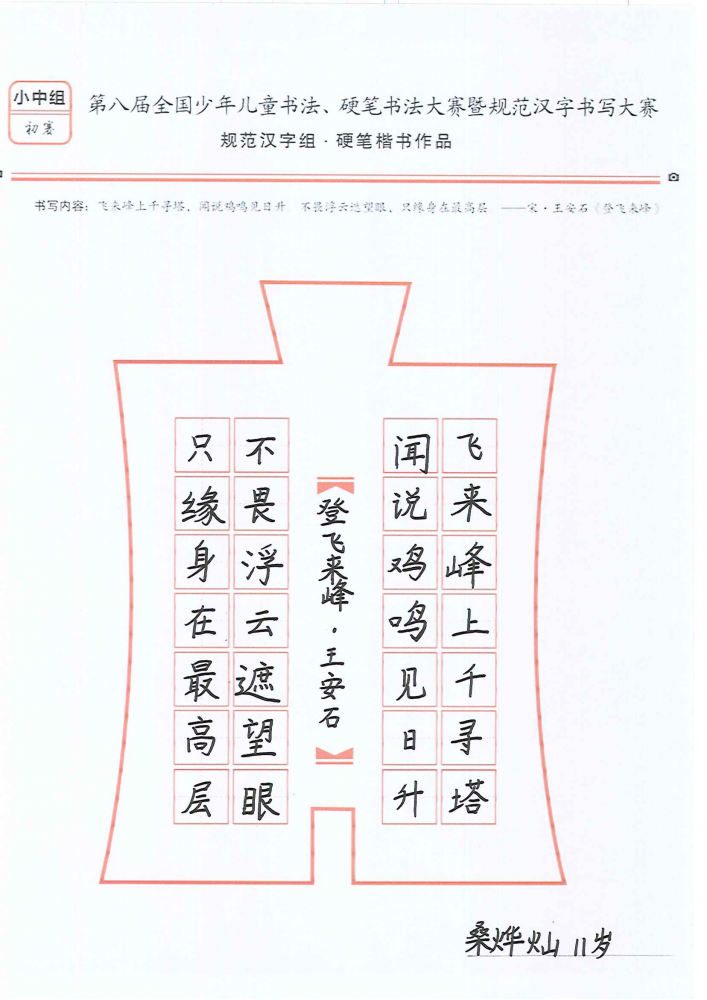 小中组
初赛
第八届全国少年儿童书法、硬笔书法大赛暨规范汉字书写大赛
规范汉字组·硬笔楷书作品
书写内容：飞来峰上千寻塔，闻说鸡鸣见日升 不畏浮云遮望眼，只缘身在最高层 ——宋·王安石《登飞来峰》
飞来峰上千寻塔
闻说鸡鸣见日升
登飞来峰·王安石
不畏浮云遮望眼
只缘身在最高层
桑烨灿 11岁